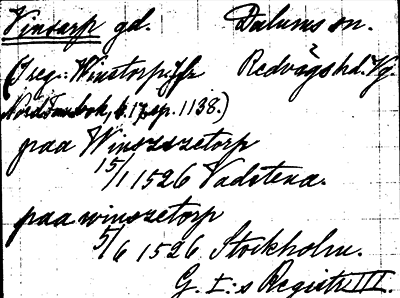 Vinsarp gd. Dalums sn.
(I reg.: Winstorp; jfr Redvägs hd. Vg.
Nord. Fam.bok, b. 17, sp. 1138.)
paa Winszszetorp
15/1 1526 Vadstena.
paa winszetorp
5/6 1526 Stockholm.
G. I:s Registr. III.